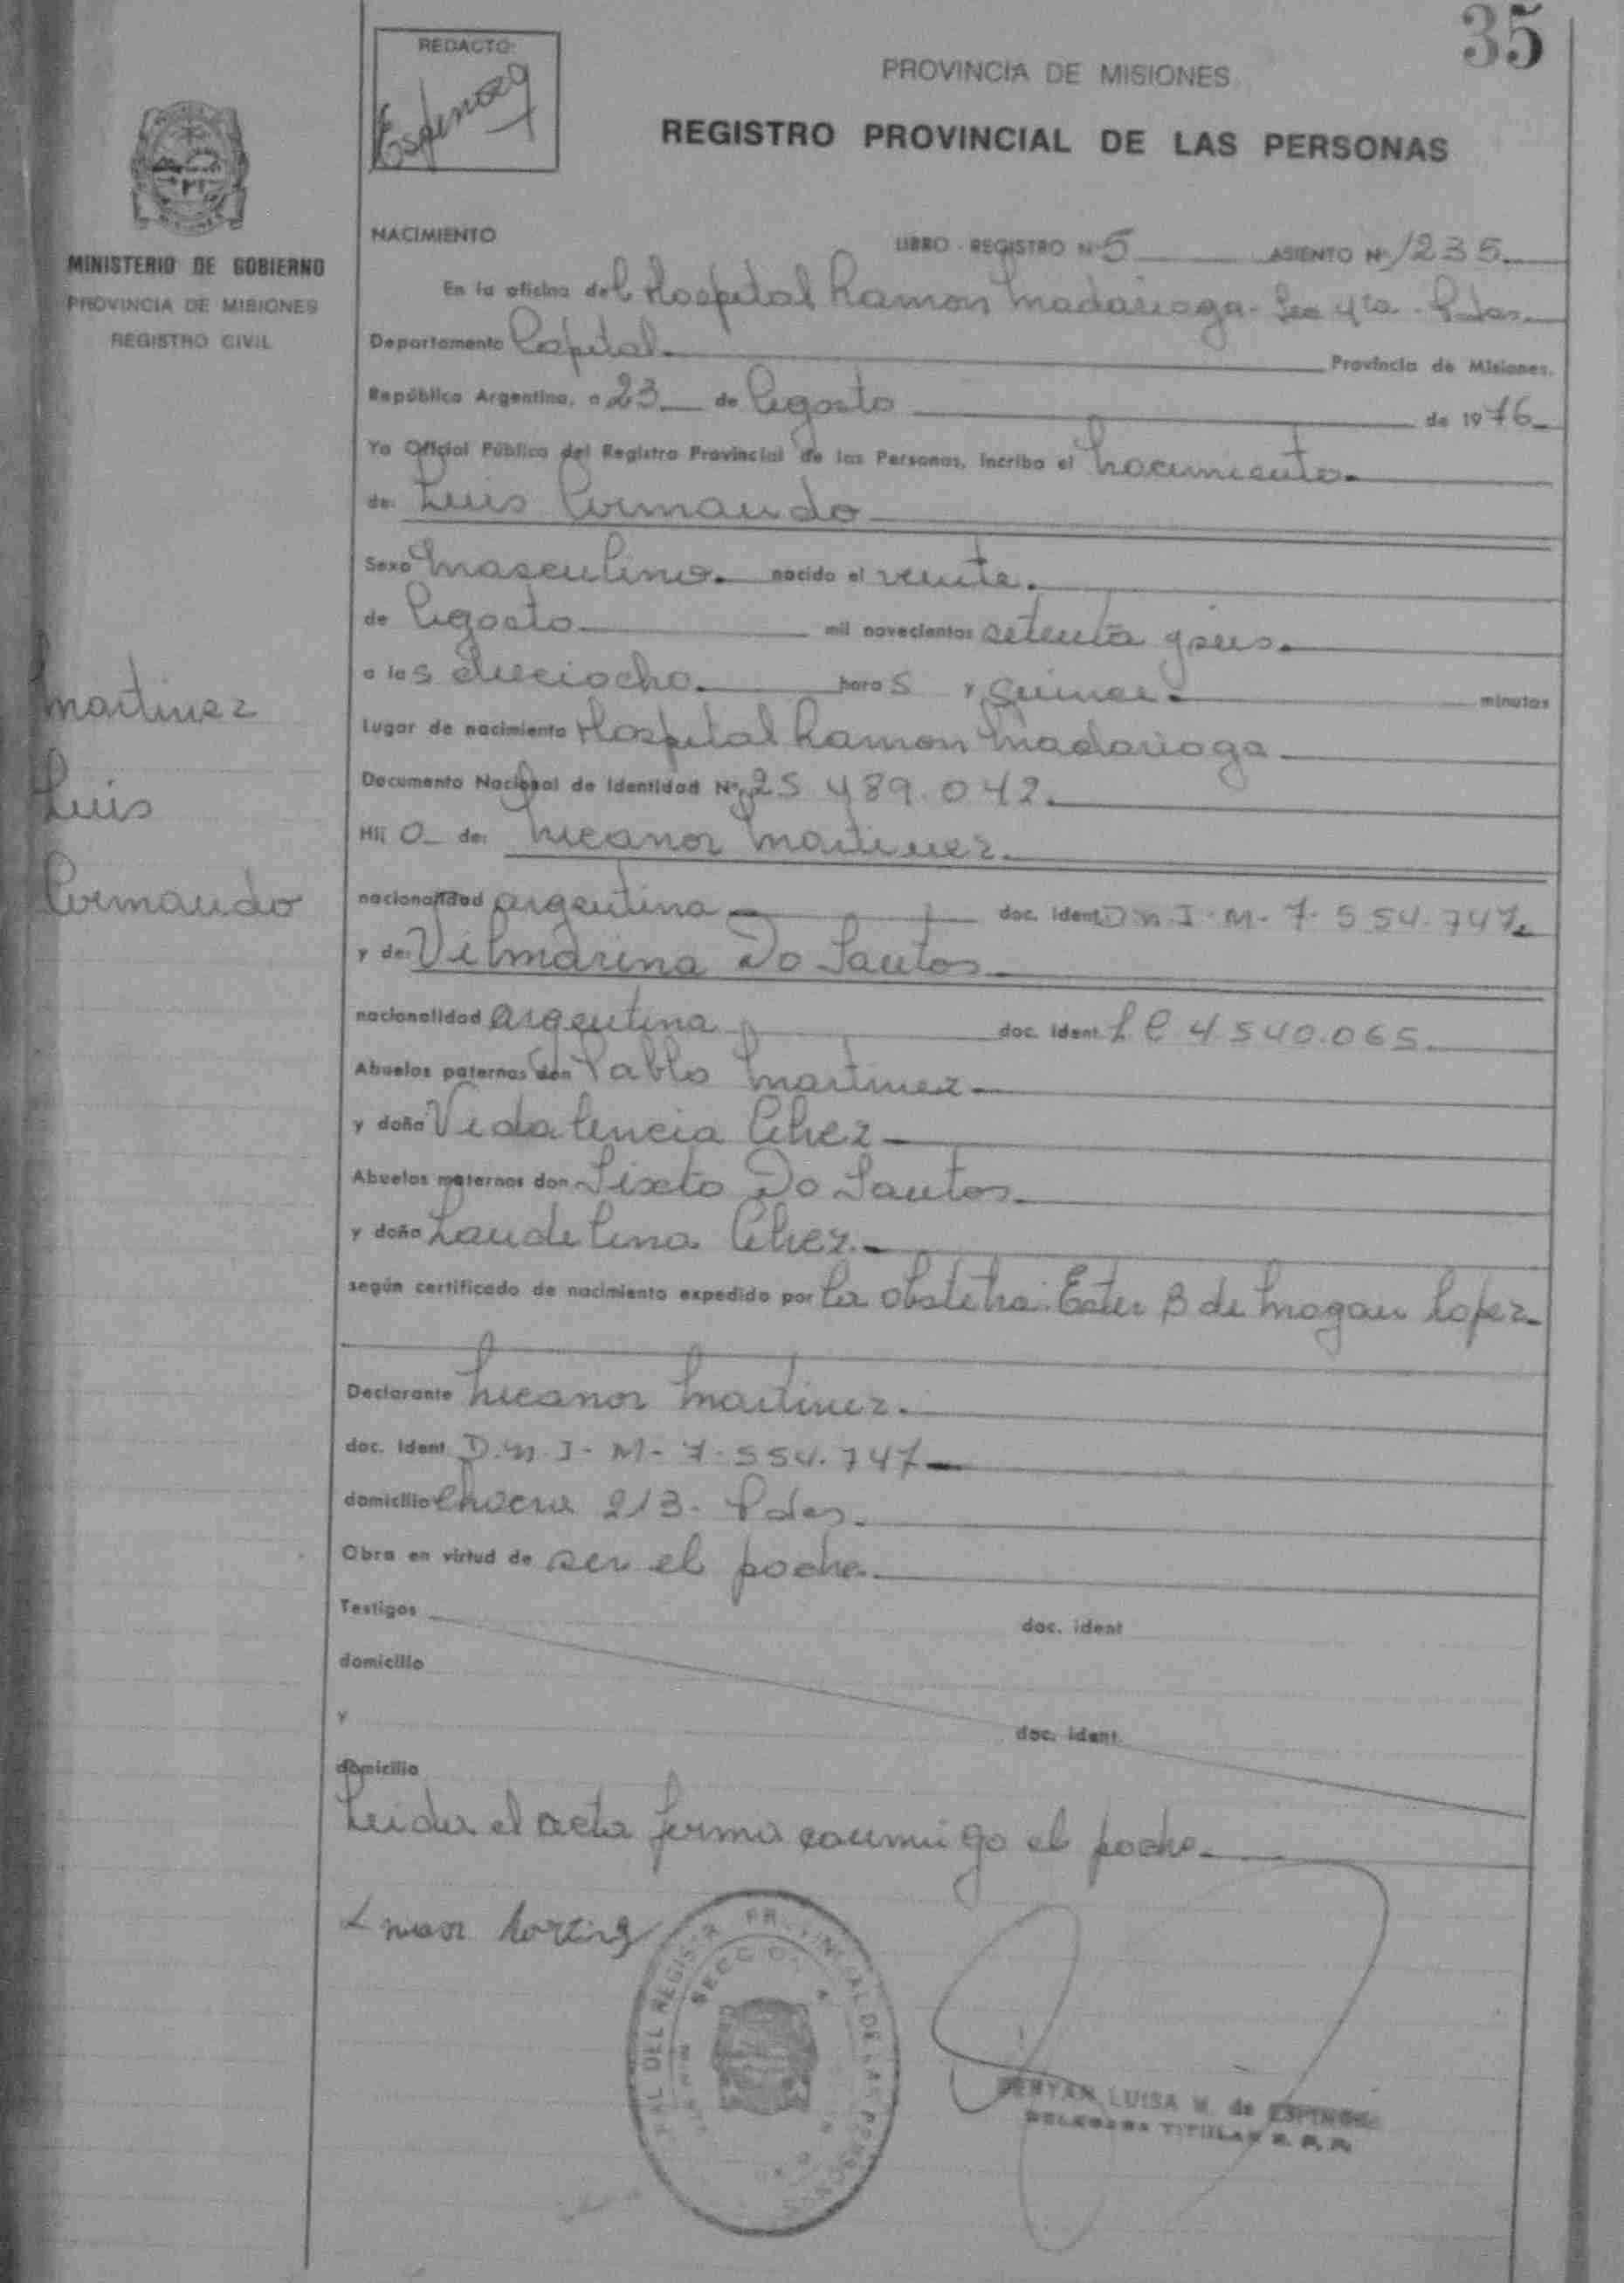 35
REDACTO:
Espinoza
PROVINCIA DE MISIONES
REGISTRO PROVINCIAL DE LAS PERSONAS
MINISTERIO DE GOBIERNO
PROVINCIA DE MISIONES
REGISTRO CIVIL
NACIMIENTO LIBRO - REGISTRO Nº 5 ASIENTO Nº 1235
En la oficina del Hospital Ramon Madariaga - Sec 4ta - Pdas.
Departamento Capital. Provincia de Misiones.
República Argentina, a 23 de Agosto de 1976
Yo Oficial Público del Registro Provincial de las Personas, incribo el nacimiento.
de: Luis Armando
Sexo masculino. nacido el veinte.
de Agosto mil novecientos setenta y seis.
a las dieciocho. horas y quince. minutos
Martinez
Luis
Armando
Lugar de nacimiento Hospital Ramon Madariaga
Documento Nacional de Identidad Nº 25.489.042.
Hijo de: Nicanor Martinez.
nacionalidad argentina doc. ident D.N.I-M-7.554.747.
y de: Vilmarina Do Santos
nacionalidad argentina doc. ident. L C 4.540.065.
Abuelos paternos don Pablo Martinez
y doña Vidalencia Alvez
Abuelos maternos don Sixto Do Santos
y doña Laudelina Alvez.
según certificado de nacimiento expedido por la obstetra: Ester B de Mogan Lopez
Declarante Nicanor Martinez.
doc. ident D.N.I-M-7.554.747
domicilio Chacra 213- Pdas.
Obra en virtud de ser el padre.
Testigos doc. ident
domicilio
y doc. ident.
domicilio
Leida el acta firma conmigo el padre.
LUISA M. de ESPINOZA
DELEGADA TITULAR R. P. P.